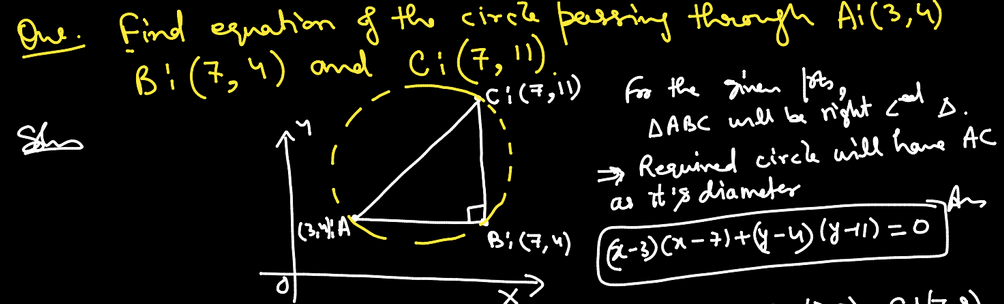 Que. Find equation of the circle passing through A:(3,4)
B:(7,4) and C:(7,11).
Soln
y
C:(7,11)
(3,4):A
B:(7,4)
O
X
For the given pts,
△ABC will be right ∠ed △.
⇒ Required circle will have AC
as it's diameter
Ans
(x-3)(x-7)+(y-4)(y-11)=0